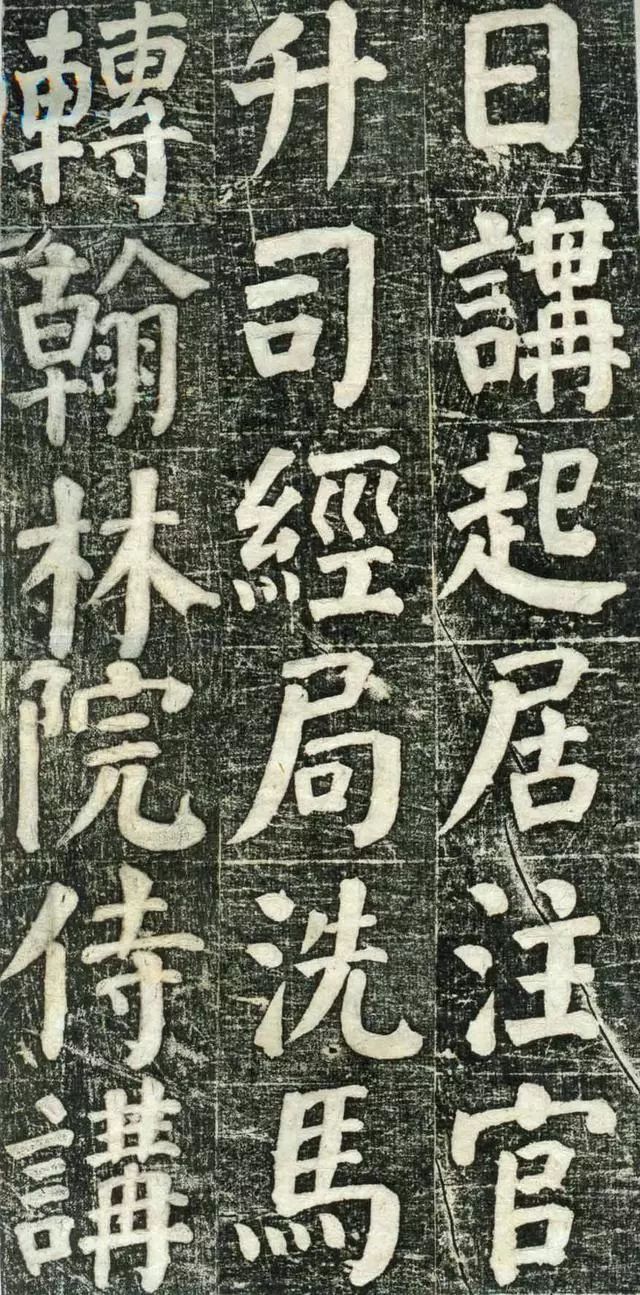 日講起居注官
升司經局洗馬
轉翰林院侍講